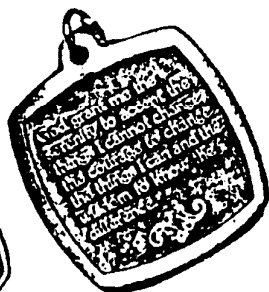 God grant me the
serenity to accept the
things I cannot change
the courage to change
the things I can and the
wisdom to know the
difference